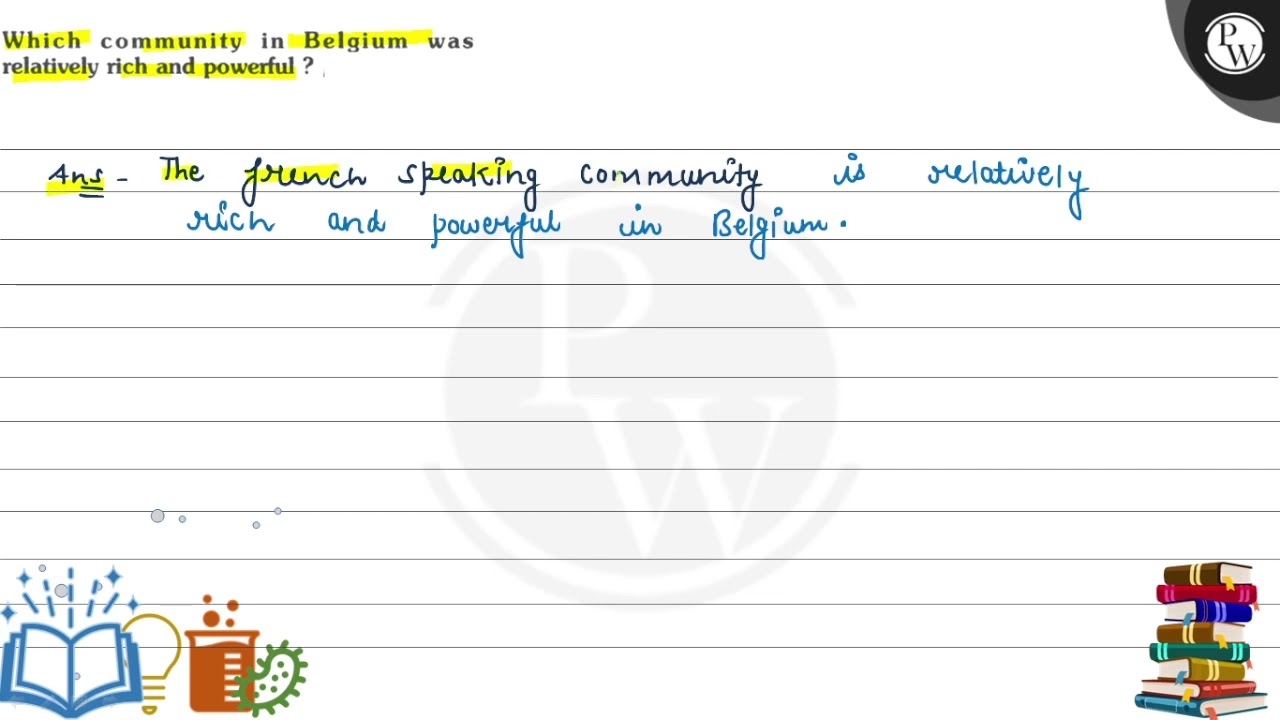 Which community in Belgium was
relatively rich and powerful ?
PW
Ans - The french speaking community is relatively
rich and powerful in Belgium.
PW